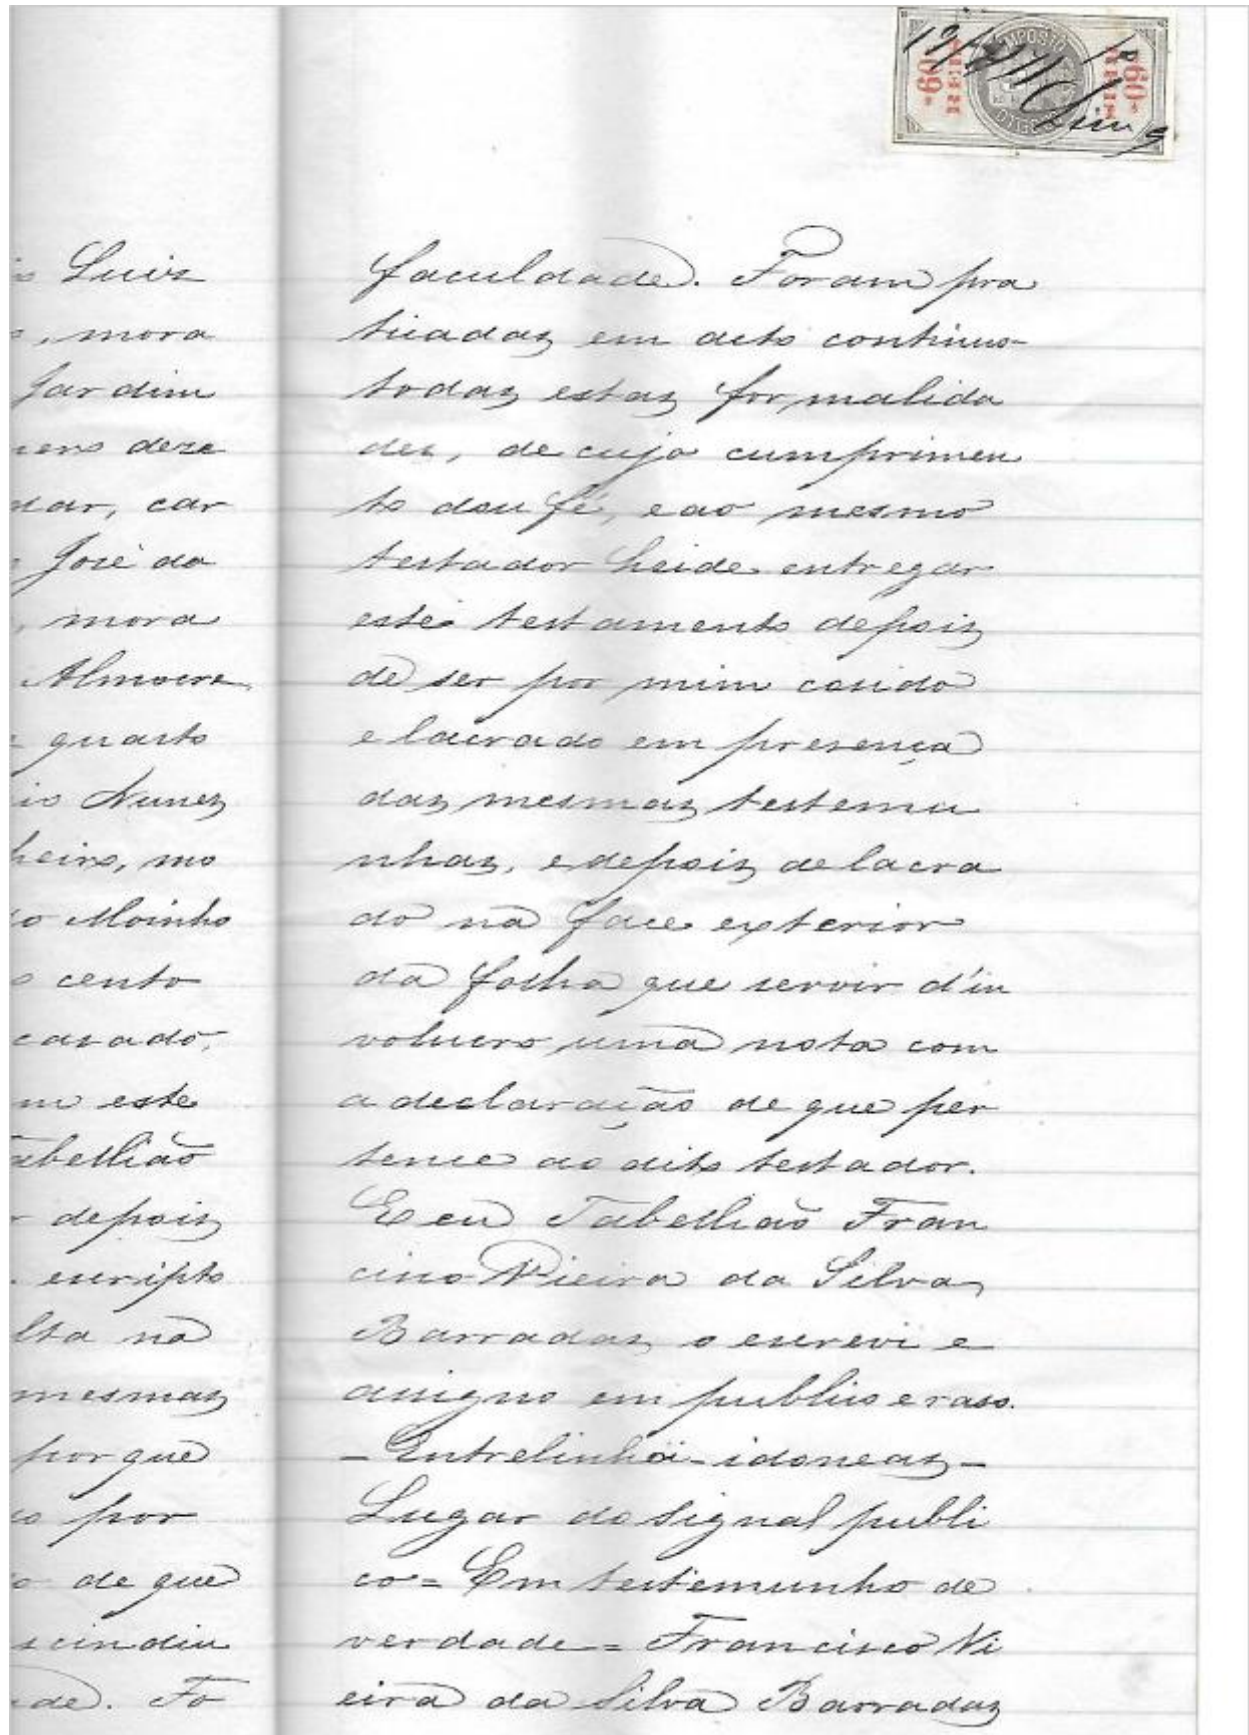 IMPOSTO
60
REIS
60
REIS
Luiz
, mora
Jardim
deze
car
José da
, mora
Almocre
quarto
Nunes
heiro, mo
Moinho
cento
casado,
este
abellião
depois
escripto
lta na
mesmas
porque
por
de que
scindiu
de. Fo
faculdade. Foram pra
ticadas em acto continuo
todas estas formalida
des, de cujo cumprimen
to dou fé, e ao mesmo
testador heide entregar
este testamento depois
de ser por mim cosido
e lacrado em presença
das mesmas testemu
nhas, e depois de lacra
do na face exterior
da folha que servir d'in
volucro uma nota com
a declaração de que per
tence ao dito testador.
E eu Tabellião Fran
cisco Vieira da Silva
Barradas o escrevi e
assigno em publico e raso.
– Entrelinhei – idoneas –
Lugar do signal publi
co = Em testemunho de
verdade = Francisco Vi
eira da Silva Barradas